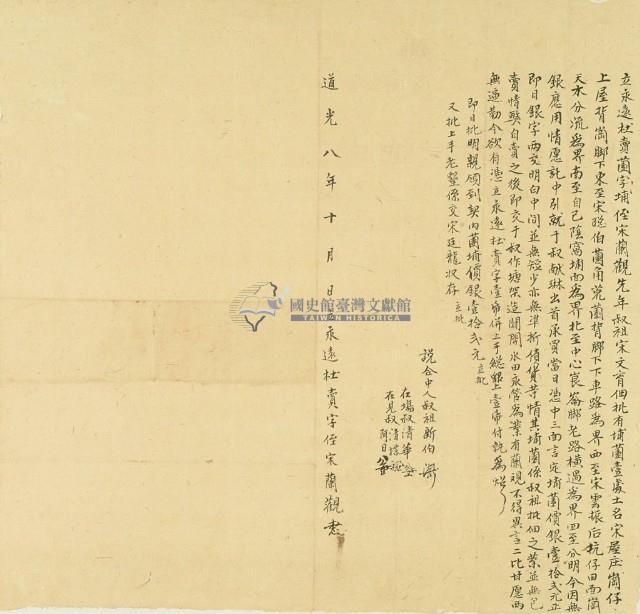 立永遠杜賣菌字埔侄宋蘭觀先年叔祖宋文育佃批有埔菌壹處土名宋屋庄崗仔
上屋背崗脚下東至宋聰伯菌角 菌背脚下下車路為界西至宋雲振后坑仔田面崗
天水分流為界南至自己陰窩埔面為界北至中心崀崙脚老路橫過為界四至分明今因無
銀應用情愿託中引就于叔 琳出首承買當日憑中三面言定埔菌價銀壹拾弍元正
即日銀字兩交明白中間並無短少亦無準折債貨等情其埔菌係叔祖批佃之業並無包
賣情弊自賣之後即交于叔作塘架造開闢水田永管為業有蘭觀不得異言二比甘愿两
無逼勒今欲有憑立永遠杜賣字壹帋併上手總 壹帋付執為炤
即日批明親領到契内菌埔價銀壹拾弍元 立批
又批上手老墾係交宋廷龍收存 立批
説合中人叔祖新伯
在塲叔清華
在見叔清 阿日
道光八年十月 日立永遠杜賣字侄宋蘭觀
國史館臺灣文獻館
TAIWAN HISTORICA